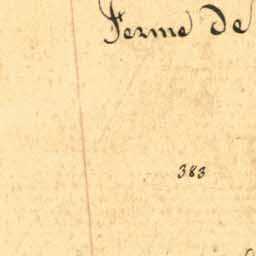 Ferme de
383